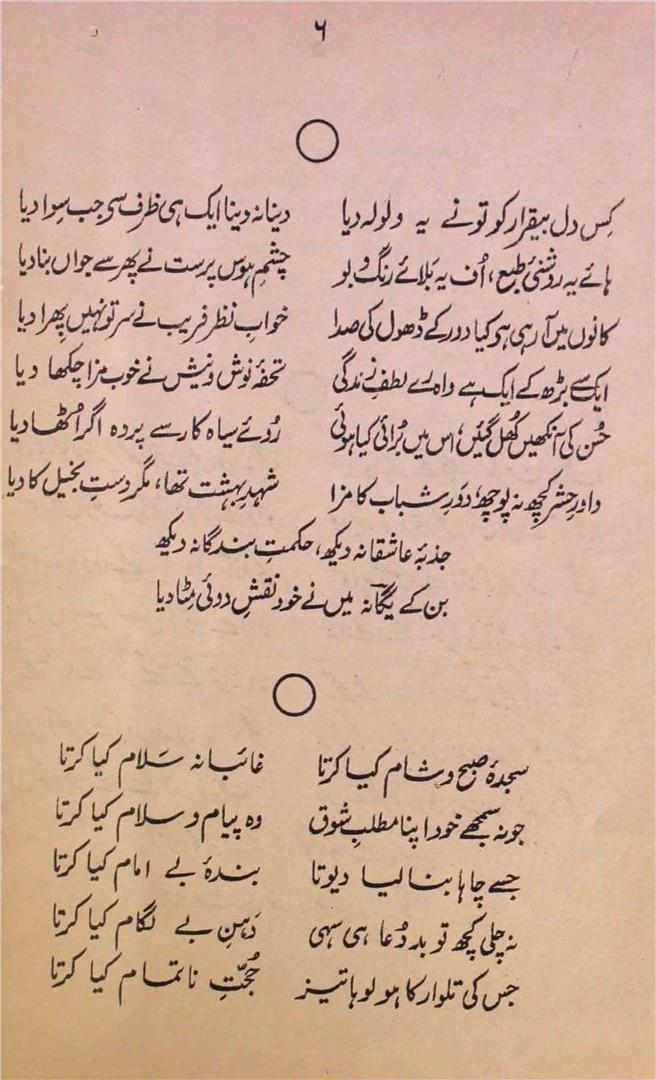 ۶
کِس دل بیقرار کو تو نے یہ ولولہ دیا دینا نہ دینا ایک ہی ظرف سی جب سِوا دیا
ہائے یہ روشنیٔ طبع، اُف یہ بَلائے رنگ و بو چشمِ ہوس پرست نے پھر سے جواں بنا دیا
کانوں میں آ رہی ہی کیا دور کے ڈھول کی صدا خوابِ نظر فریب نے سر تو نہیں پھرا دیا
ایک سے بڑھ کے ایک ہے واہ رے لطفِ زندگی تحفۂ نوش و نیش نے خوب مزا چکھا دیا
حُسن کی آنکھیں کُھل گئیں، اس میں بُرائی کیا ہوئی رُوئے سیاہ کار سے پردہ اگر اُٹھا دیا
داورِ حشر کچھ نہ پوچھ، دَورِ شباب کا مزا شہدِ بہشت تھا، مگر دستِ بخیل کا دیا
جذبۂ عاشقانہ دیکھ، حکمتِ بندگانہ دیکھ
بن کے یگانہ میں نے خود نقشِ دوئی مِٹا دیا
سجدۂ صبح و شام کیا کرتا غائبانہ سَلام کیا کرتا
جو نہ سمجھے خود اپنا مطلبِ شوق وہ پیام و سلام کیا کرتا
جسے چاہا بنا لیا دیوتا بندۂ بے امام کیا کرتا
نہ چلی کچھ تو بد دُعا ہی سہی دَہنِ بے لگام کیا کرتا
جس کی تلوار کا ہو لوہا تیز حُجّتِ ناتمام کیا کرتا